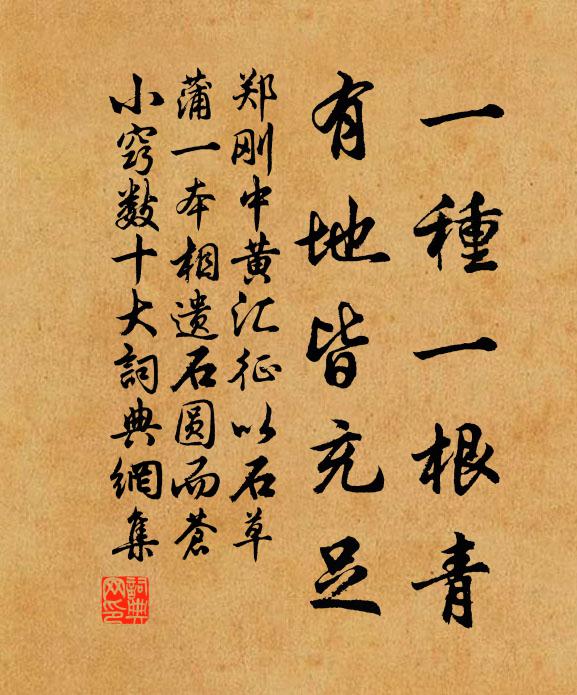 一種一根青
有地皆充足
郑刚中黄汇征以石草
蒲一本相遗石圆而苍
小窍数十大詞典網集
詞典
网印